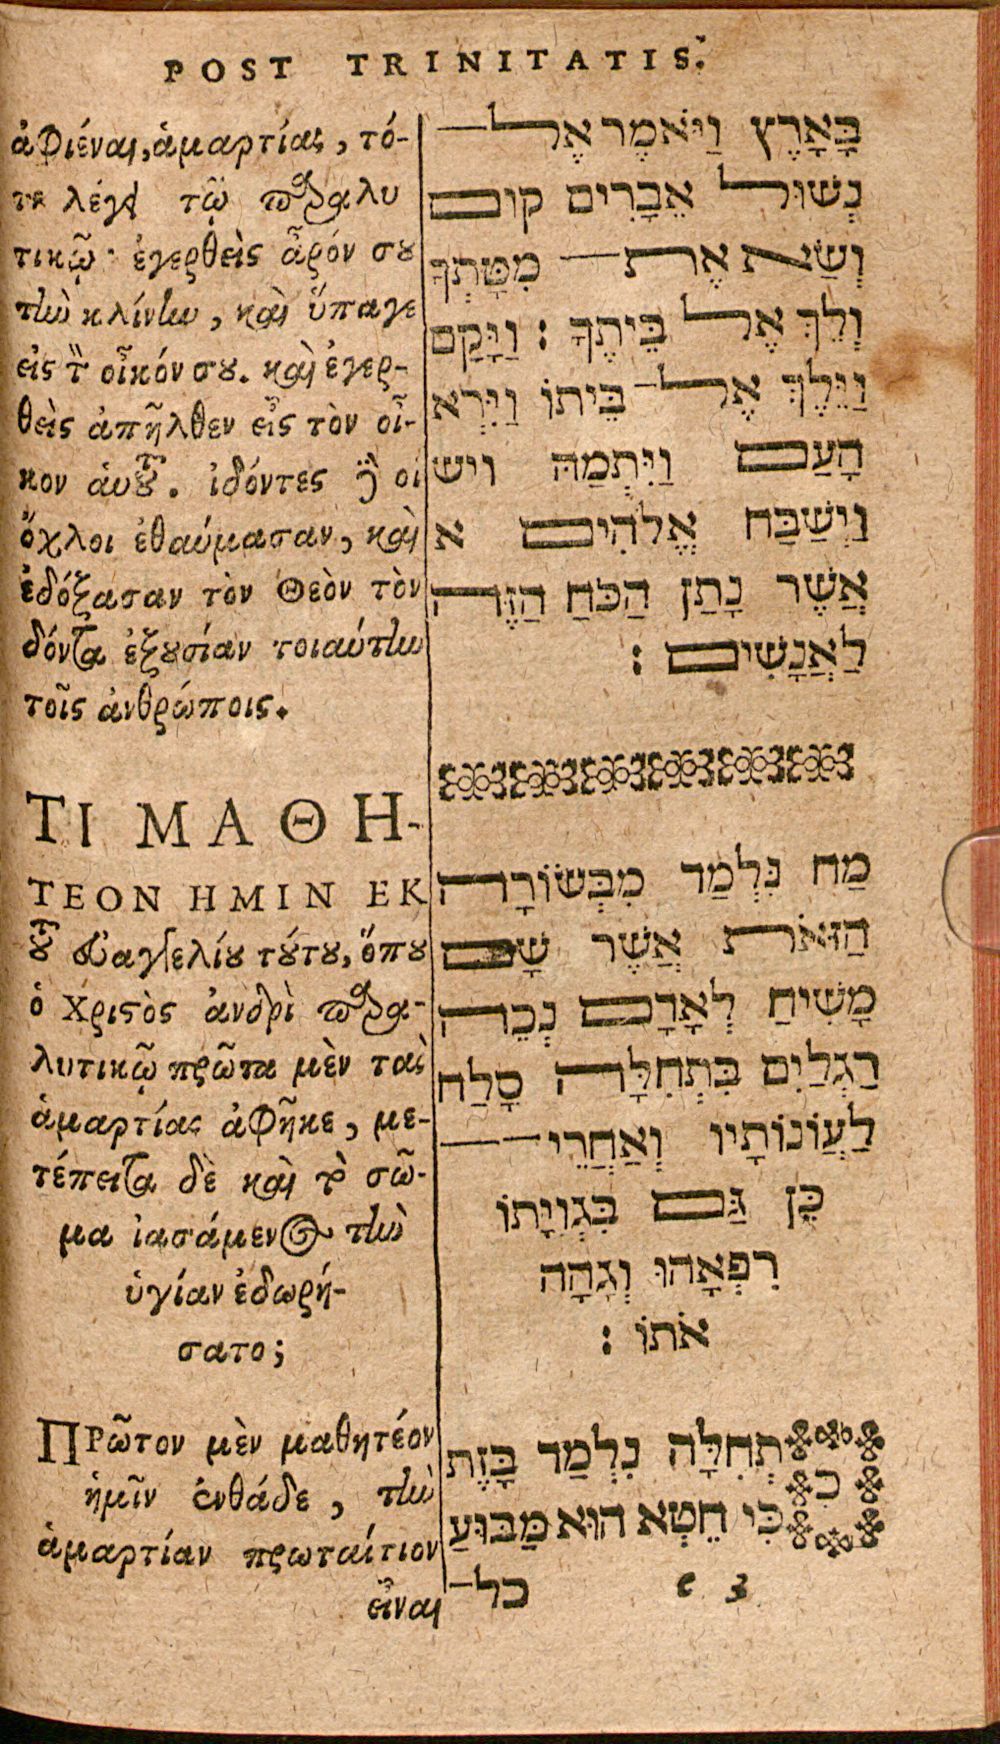 POST TRINITATIS.
ἀφιέναι, ἁμαρτίας, τό-
τε λέγει τῷ παραλυ
τικῷ· ἐγερθεὶς ἆρόν σου
τὴν κλίνην, καὶ ὕπαγε
εἰς τὸν οἶκόν σου. καὶ ἐγερ-
θεὶς ἀπῆλθεν εἰς τὸν οἶ-
κον αὑτοῦ. ἰδόντες δὲ οἱ
ὄχλοι ἐθαύμασαν, καὶ
ἐδόξασαν τὸν Θεὸν τὸν
δόντα ἐξουσίαν τοιαύτην
τοῖς ἀνθρώποις.
ΤΙ ΜΑΘΗ-
ΤΕΟΝ ΗΜΙΝ ΕΚ
τοῦ εὐαγγελίου τούτου, ὅπου
ὁ Χριστὸς ἀνδρὶ παρα-
λυτικῷ πρῶτα μὲν τὰς
ἁμαρτίας ἀφῆκε, με-
τέπειτα δὲ καὶ τὸ σῶ-
μα ἰασάμενος τὴν
ὑγίαν ἐδωρή-
σατο;
ΠΡῶτον μὲν μαθητέον
ἡμῖν ἐνθάδε, τὴν
ἁμαρτίαν πρωταίτιον
εἶναι
בָּאָרֶץ וַיֹּאמֶר אֶל־
נְשׁוּל אֵבָרִים קוּם
וְשָׂא אֶת־ מִטָּתְךָ
וָלֵךְ אֶל בֵּיתֶךָ : וַיָּקָם
וַיֵּלֶךְ אֶל־ בֵּיתוֹ וַיִּרְא
הָעַם וַיִּתְמַהּ ויש
וַיְשַׁבַּח אֱלֹהִים א
אֲשֶׁר נָתַן הַכֹּחַ הַזֶּה
לַאֲנָשִׁים :
מַה נִּלְמַד מִבְּשׂוֹרָה
הַזֹּאת אֲשֶׁר שָׁם
מָשִׁיחַ לְאָדָם נְכֵה
רַגְלַיִם בִּתְחִלָּה סָלַח
לַעֲוֹנוֹתָיו וְאַחֲרֵי־
כֵּן גַּם בִּגְוִיָּתוֹ
רִפְאָהוּ וְגָהָה
אֹתוֹ :
תְחִלָּה נִלְמַד בָּזֶת
כִּי חֵטְא הוּא מַבּוּעַ
כל־
c 3